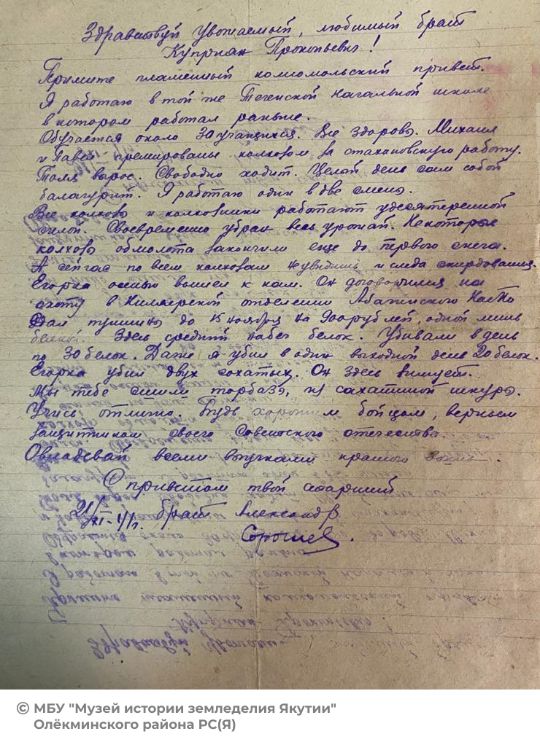 Здравствуй Уважаемый, любимый брат
Куприян Прокопьевич!
Примите пламенный комсомольский привет.
Я работаю в той же Тегенской начальной школе
в котором работал раньше.
Обучается около 30 учащихся. Все здорово. Михаил
и Павел премированы колхозом за стахановскую работу.
Толя вырос. Свободно ходит. Целой день сам собой
балагурит. Я работаю один в две смены.
Все колхозы и колхозники работают удесятеренной
силой. Своевременно убран весь урожай. Некоторые
колхозы обмолота закончили еще до первого снега.
А сейчас по всем колхозам не увидишь и следа скирдования.
Егорка осенью вышел к нам. Он договорился на
охоту в отделении
Дал пушнину до 15 ноября на 900 рублей, одной лишь
белкой. Здесь средний набег белок. Убивали в день
по 30 белок. Даже я убил в один выходной день 20 белок.
Егорка убил двух сохатых. Он здесь
Мы тебе сшили торбаза, из сохатиной шкуры.
Учись отлично. Будь хорошим бойцом, верным
защитником своего Советского отечества.
Овладевай всеми
С приветом твой старший
брат Александр
21/XI-41г.
© МБУ "Музей истории земледелия Якутии"
Олёкминского района РС(Я)